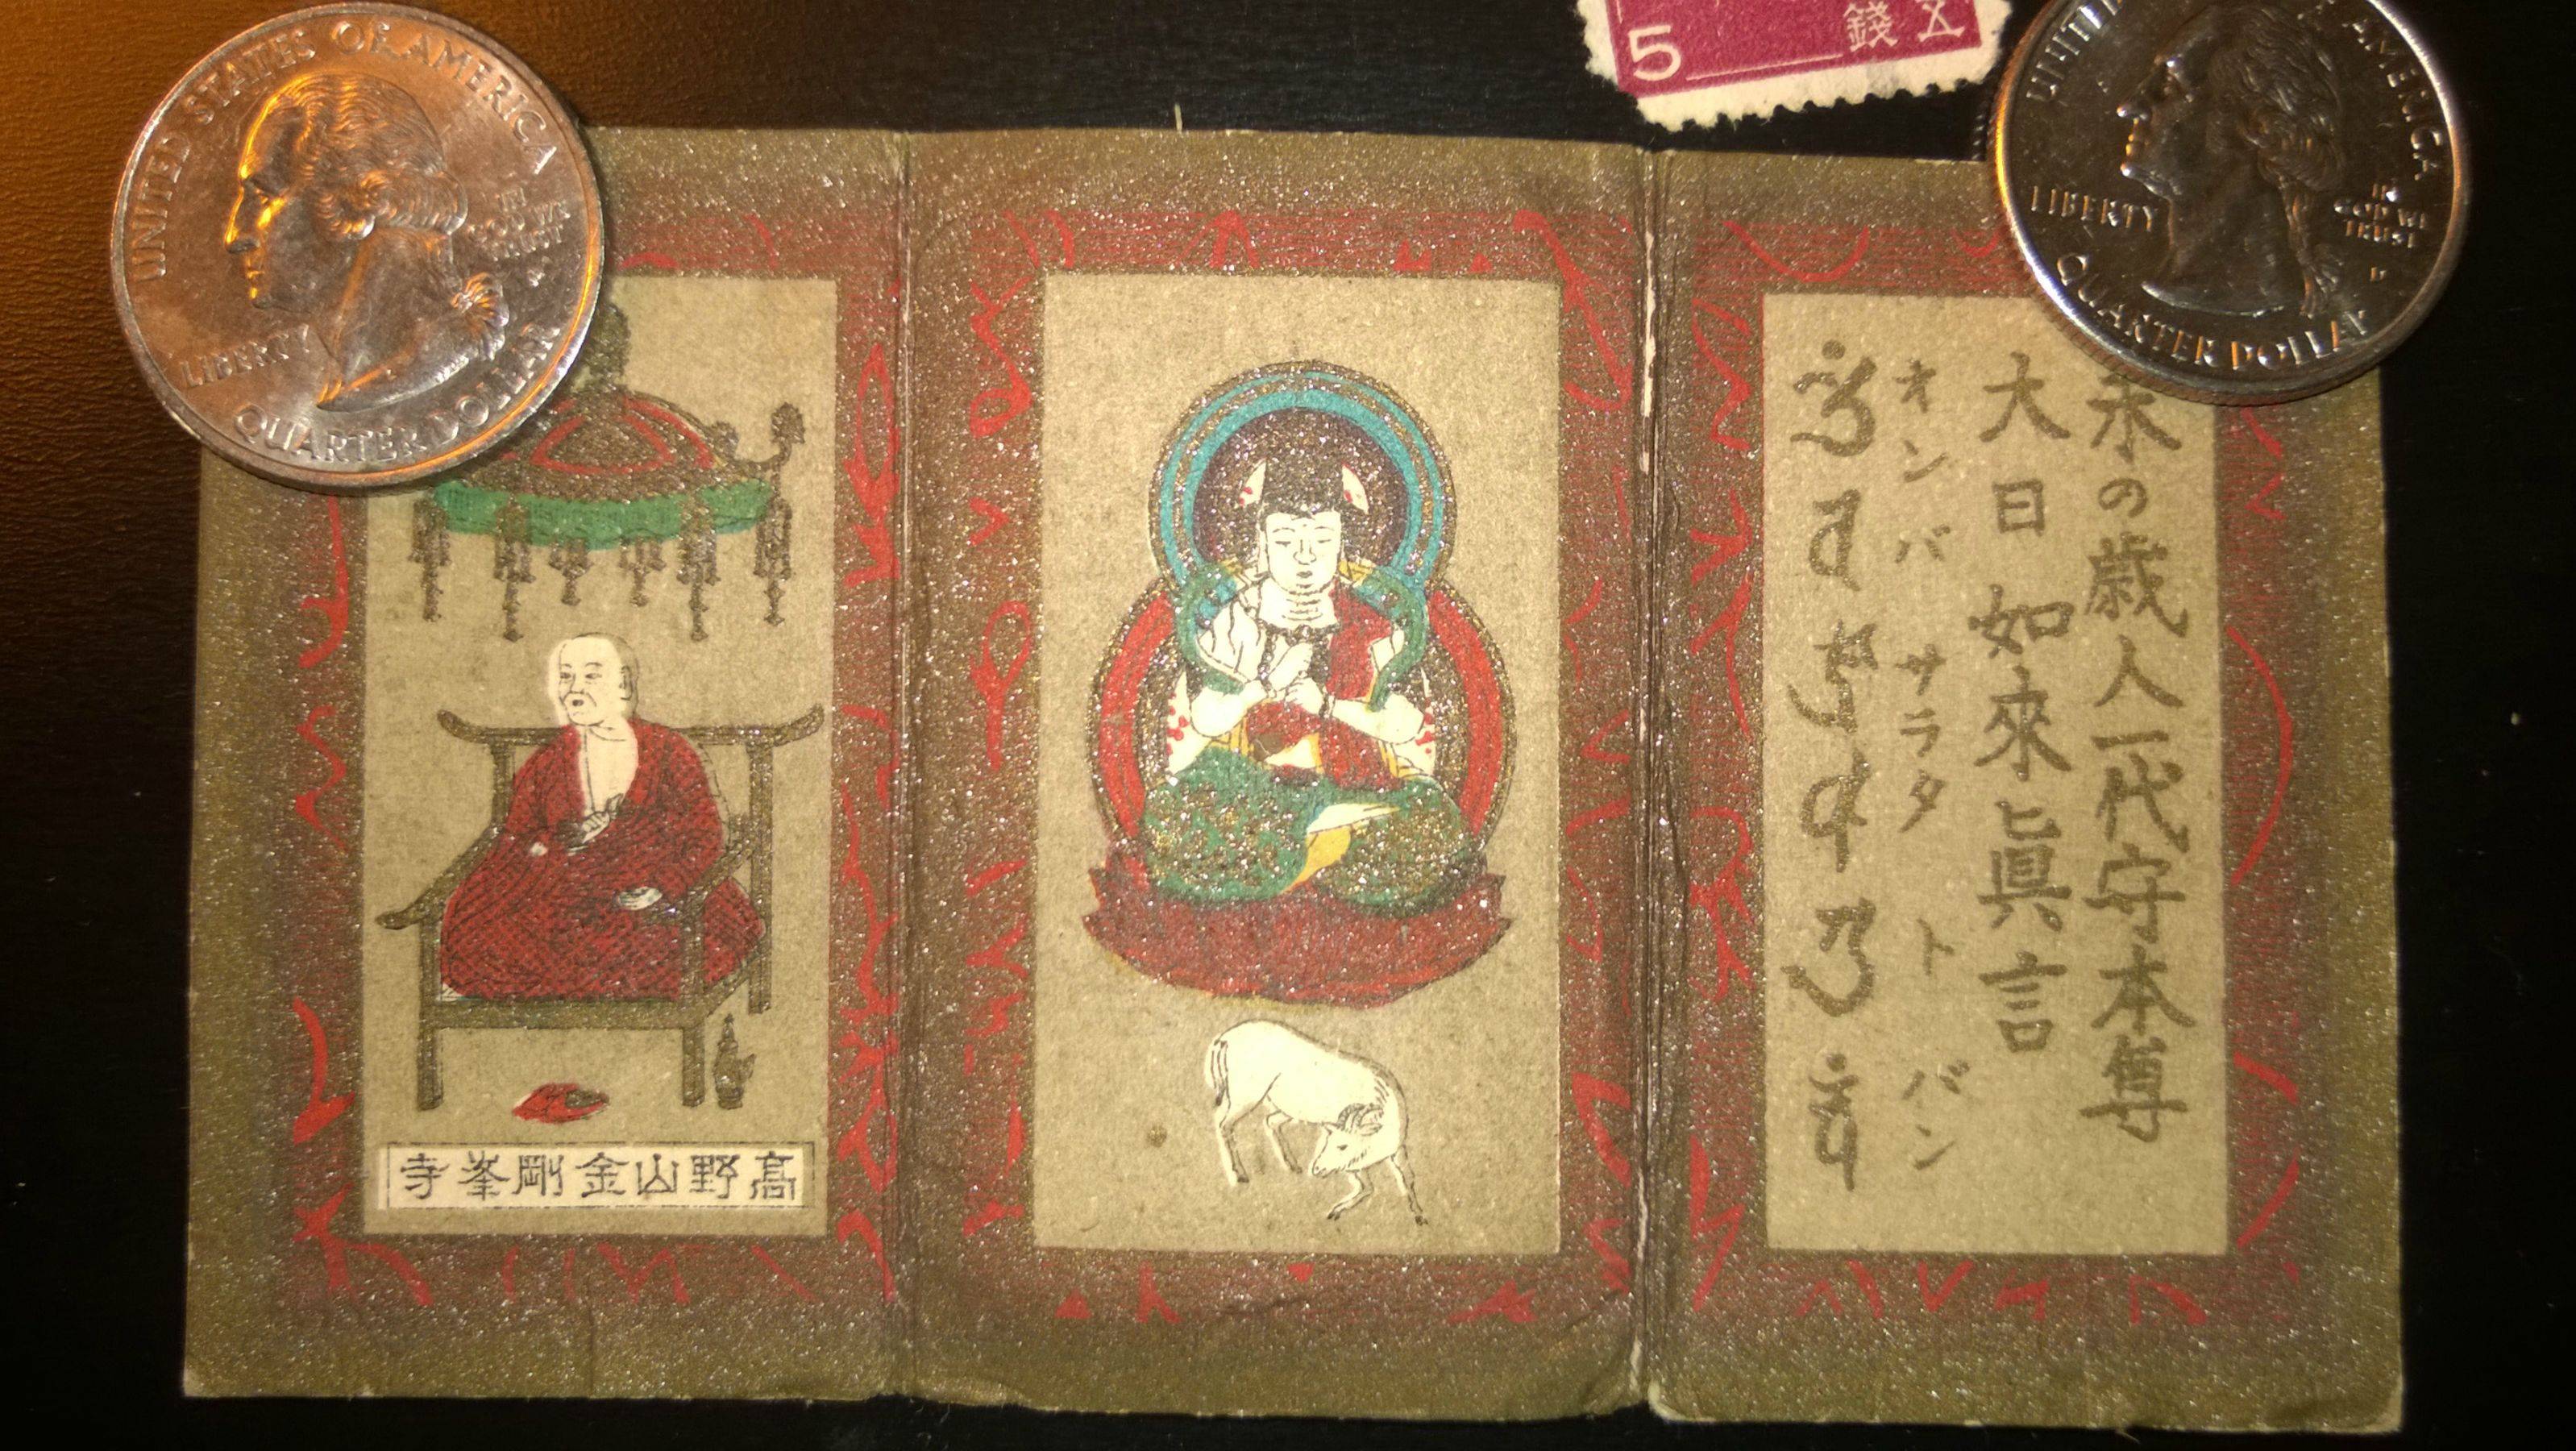 UNITED STATES OF AMERICA
LIBERTY
IN GOD WE TRUST
QUARTER DOLLAR
5
五錢
AMERICA
LIBERTY
IN GOD WE TRUST
QUARTER DOLLAR
未の歳人一代守本尊
大日如來眞言
オンバ サラタ ト バン
高野山金剛峯寺